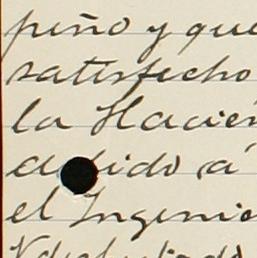 peño y que
satisfecho
la Hacien
dido á
el Ingenio